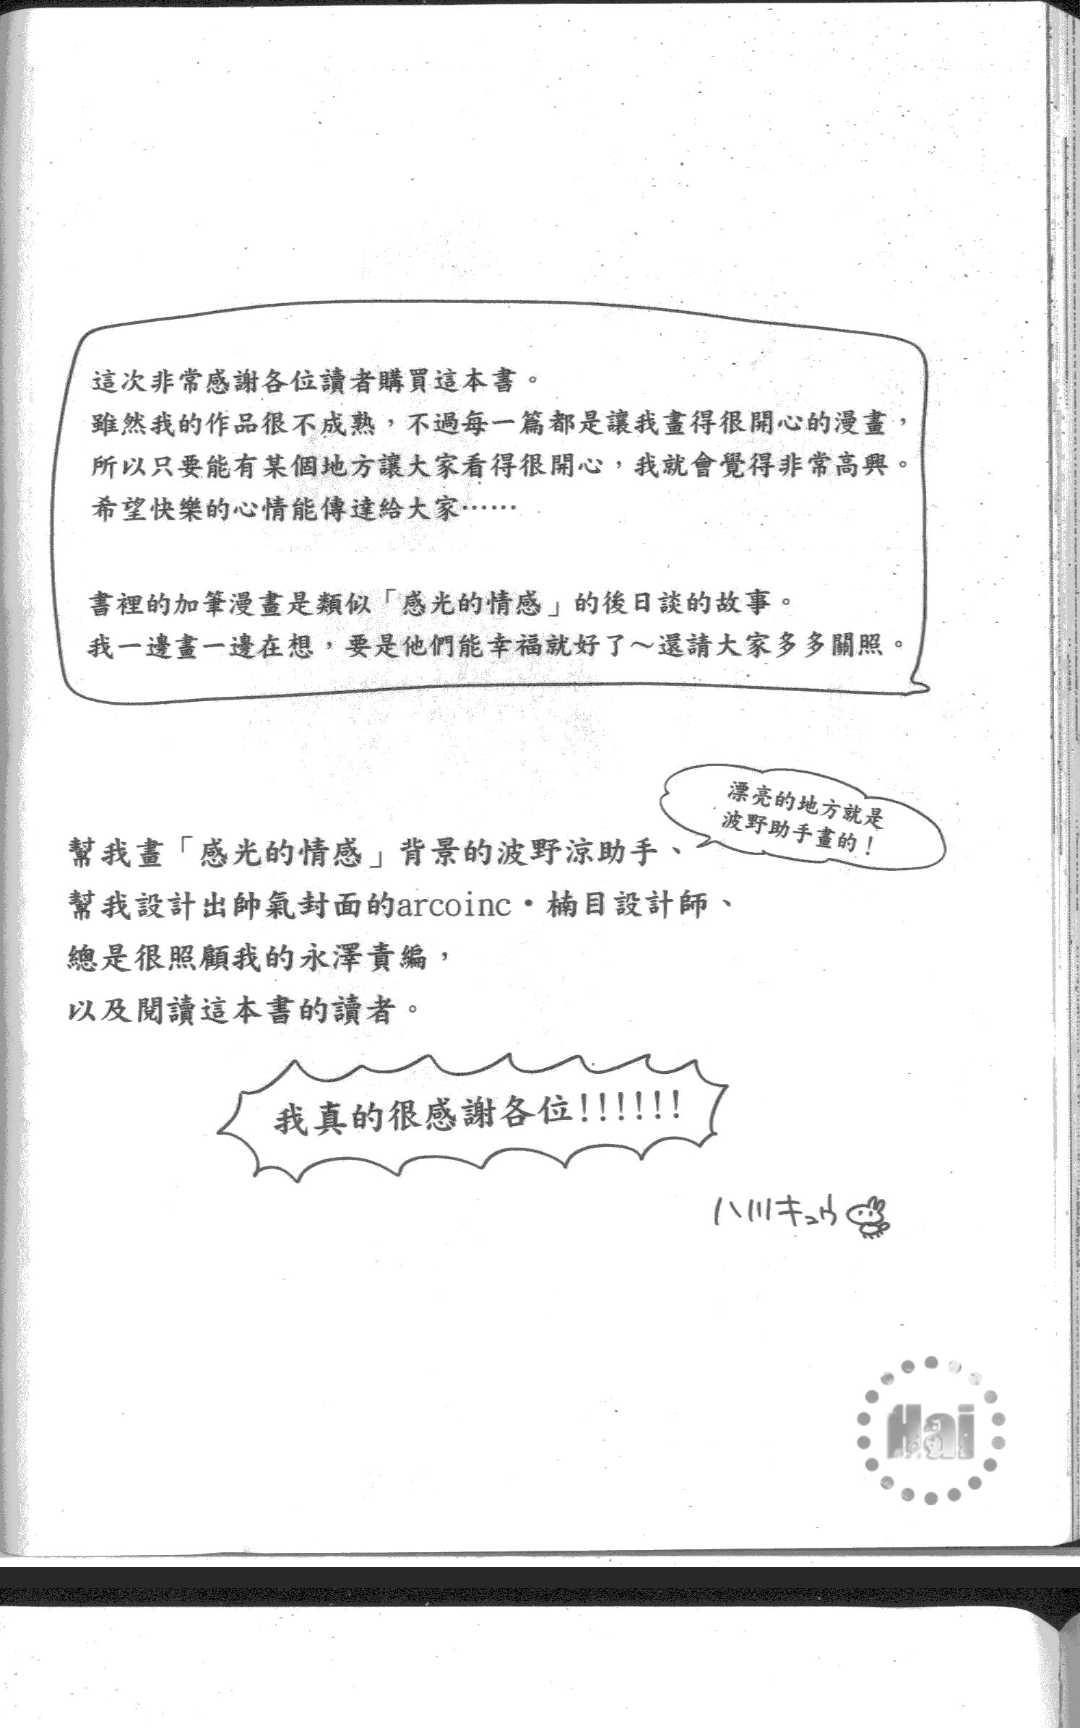 這次非常感謝各位讀者購買這本書。
雖然我的作品很不成熟，不過每一篇都是讓我畫得很開心的漫畫，
所以只要能有某個地方讓大家看得很開心，我就會覺得非常高興。
希望快樂的心情能傳達給大家⋯⋯
書裡的加筆漫畫是類似「感光的情感」的後日談的故事。
我一邊畫一邊在想，要是他們能幸福就好了～還請大家多多關照。
漂亮的地方就是
波野助手畫的！
幫我畫「感光的情感」背景的波野涼助手、
幫我設計出帥氣封面的arcoinc・楠目設計師、
總是很照顧我的永澤責編，
以及閱讀這本書的讀者。
我真的很感謝各位!!!!!!
八川キュウ
Hai